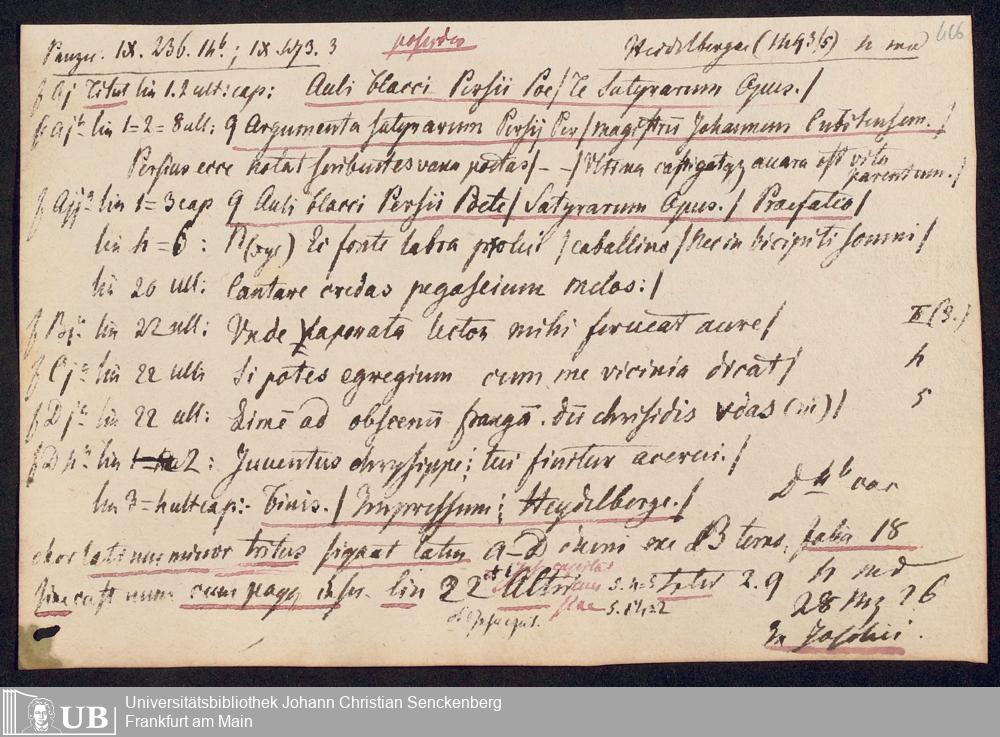 Panzer. IX. 236. 14b; IX. 473. 3 possideo Heidelbergae (1493/5) 4 ma 666
f. Aj Titul lin 1.2 ult: cap: Auli Flacci Persii Poe/Te Satyrarum Opus./
f. Ajb lin 1=2=8 ult: 9 Argumenta satyrarum Persij Per/magistrū Johannem Cubitensem./
Persius ecce notat scribentes vana poetas/ - - /Ultima castigatqz auara est vita parentum./
f. Aija lin 1=3 cap 9 Auli Flacci Persii Poete/Satyrarum Opus./ Praefatio/
lin 4=6: N(xyl) Ec fonte labra prolui /caballino/Nec in bicipiti somni/
lin 20 ult: Cantare credas pegaseium melos:/
f. Bja lin 22 ult: Vnde vaporata lector mihi ferueat aure/ II (3.)
f Cja lin 22 ult: Si potes egregium cum me vicinia dicat/ 4
f. Dja lin 22 ult: Limē ad obscenū frangā. dū chrisidis vdas (in)/ 5
f D4a lin 2: Juuentus chrysippe; tui finitur acerui./
lin 3=4 ult cap: Finis./ Impressum; Heydelberge./ D 4b vac
char latinus minor titus signat latin a-D omni exc B terno. folia 18
sine cust num cum pagg lin 22 2. 9 4 md
28 Mz 26